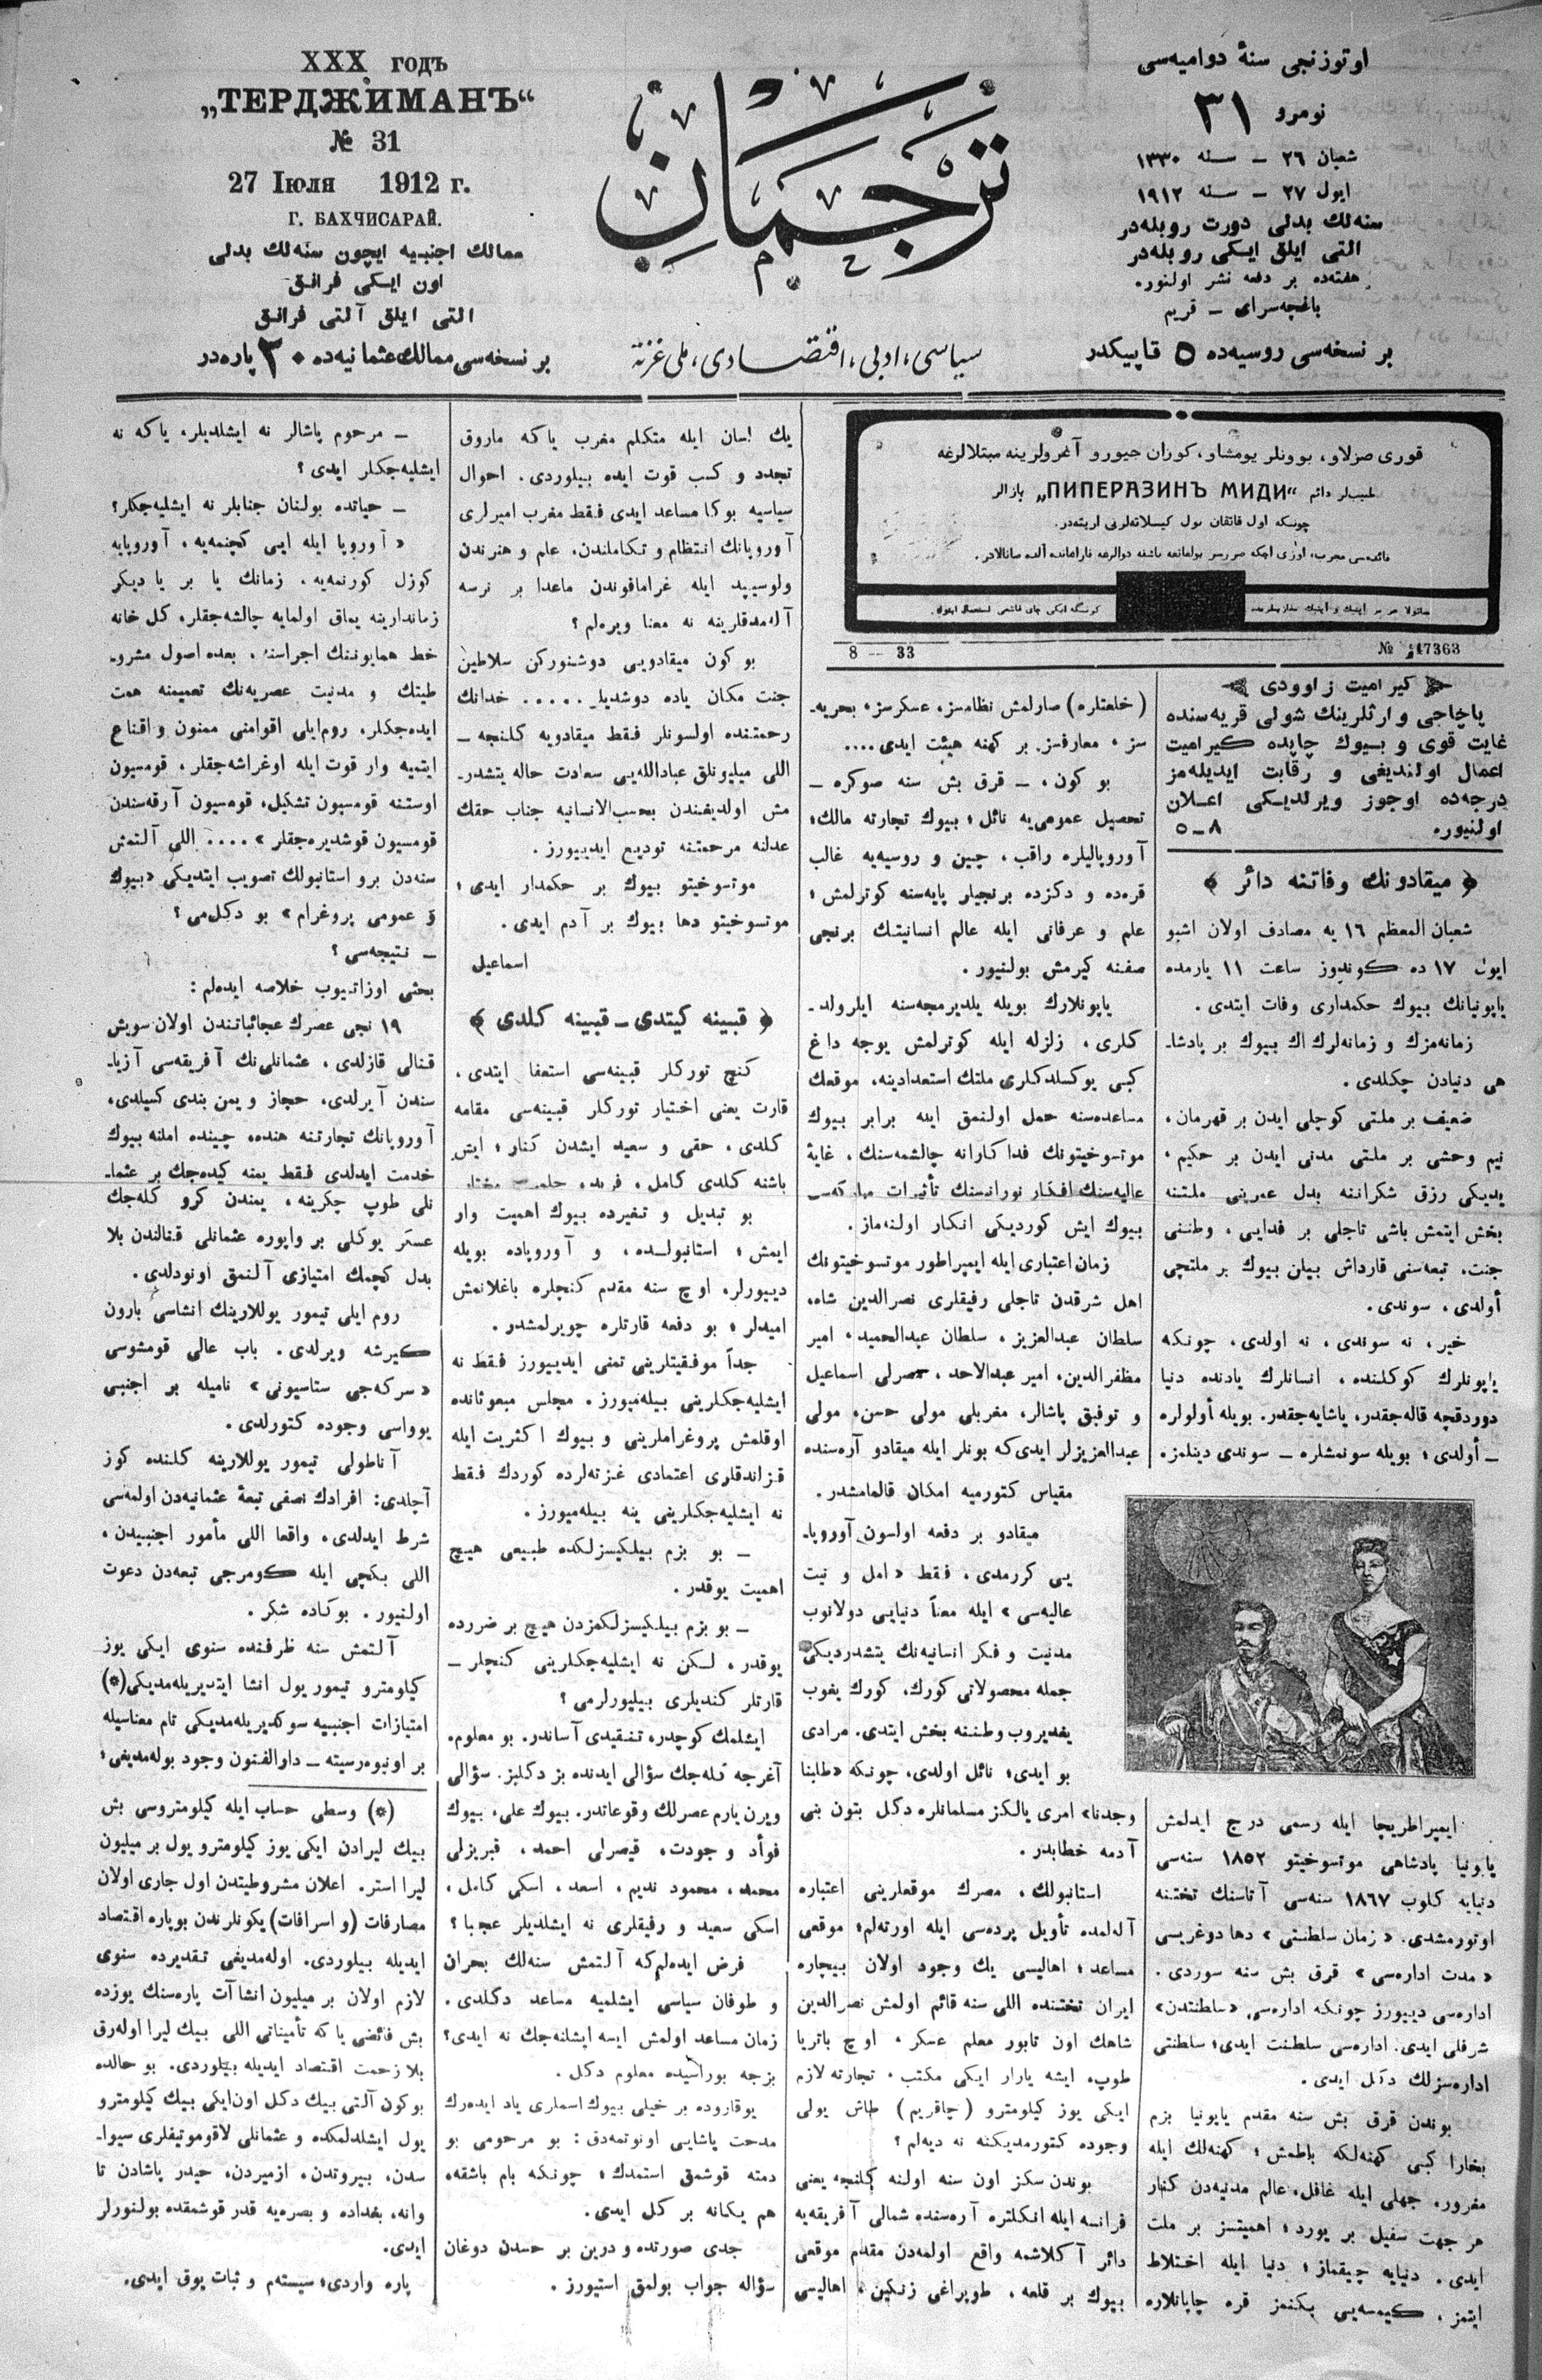 XXX годъ
„ТЕРДЖИМАНЪ“
№ 31
27 Іюля 1912 г.
Г. БАХЧИСАРАЙ.
ممالك اجنبیه ایچون سنه‌لك بدلی
اون ایكی فرانق
التی ایلق آلتی فرانق
بر نسخه‌سی ممالك عثمانیه‌ده ۳۰ پاره‌در
ترجمان
سیاسی، ادبی، اقتصادی، ملی غزته
اوتوزنجی سنهٔ دوامیه‌سی
نومرو ۳۱
شعبان ۲۶ – سنه ۱۳۳۰
ایول ۲۷ – سنه ۱۹۱۲
سنه‌لك بدلی دورت روبله‌در
التی ایلق ایكی روبله‌در
هفته‌ده بر دفعه نشر اولنور.
باغچه‌سرای – قریم
بر نسخه‌سی روسیه‌ده ۵ قاپیكدر
قوری صزلاو، بوونلر یومشاو، كوزان جیورو آغرولرینه مبتلالرغه
طبیبلر دائم „ПИПЕРАЗИНЪ МИДИ“ یازالر
8 — 33
№ 47363
كیرامیت زاوودی
پاچاجی وارثلرینك شولی قریه‌سنده
غایت قوی و بیوك چاپده كیرامیت
اعمال اولندیغی و رقابت ایدیله‌مز
درجه‌ده اوجوز ویرلدیكی اعلان
اولنیور. ۸–۵
﴿ میقادونك وفاتنه دائر ﴾
شعبان المعظم ۱۶ یه مصادف اولان اشبو
ایول ۱۷ ده كوندوز ساعت ۱۱ یارمده
یاپونیانك بیوك حكمداری وفات ایتدی.
زمانه‌مزك و زمانه‌لرك اك بیوك بر پادشا-
هی دنیادن چكلدی.
ضعیف بر ملتی كوچلی ایدن بر قهرمان،
نیم وحشی بر ملتی مدنی ایدن بر حكیم،
یدیكی رزق شكراننه بدل عمرینی ملتنه
بخش ایتمش باشی تاجلی بر فدایی، وطننی
جنت، تبعه‌سنی قارداش بیلن بیوك بر ملتچی
أولدی، سوندی.
خیر، نه سوندی، نه اولدی، چونكه
یاپونلرك كوكلنده، انسانلرك یادنده دنیا
دوردقچه قاله‌جقدر، یاشایه‌جقدر. بویله أولولره
– أولدی؛ بویله سونمشلره – سوندی دینلمز.
ایمپراطریچا ایله رسمی درج ایدلمش
یاپونیا پادشاهی موتسوخیتو ۱۸۵۲ سنه‌سی
دنیایه كلوب ۱۸۶۷ سنه‌سی آتاسنك تختنه
اوتورمشدی. «زمان سلطنتی» دها دوغریسی
«مدت اداره‌سی» قرق بش سنه سوردی.
اداره‌سی دییورز چونكه اداره‌سی «سلطنتدن»
شرفلی ایدی. اداره‌سی سلطنت ایدی؛ سلطنتی
اداره‌سزلك دكل ایدی.
بوندن قرق بش سنه مقدم یاپونیا بزم
بخارا كبی كهنه‌لكه باطمش؛ كهنه‌لك ایله
مغرور، جهلی ایله غافل، عالم مدنیه‌دن كنار
هر جهت سفیل بر یورد؛ اهمیتسز بر ملت
ایدی. دنیایه چیقماز؛ دنیا ایله اختلاط
ایتمز، كیمسه‌یی بكنمز قره چاپانلاره
(خلعتلره) صارلمش نظامسز، عسكرسز، بحریه-
سز، معارفسز بر كهنه هیئت ایدی....
بو كون، – قرق بش سنه صوكره –
تحصیل عمومی‌یه نائل؛ بیوك تجارته مالك؛
آوروپالیلره راقب، چین و روسیه‌یه غالب
قره‌ده و دكزده برنجیلر پایه‌سنه كوترلمش؛
علم و عرفانی ایله عالم انسانیتك برنجی
صفنه كیرمش بولنیور.
یاپونلارك بویله یلدیرمجه‌سنه ایلرولد-
كلری، زلزله ایله كوترلمش یوجه داغ
كبی یوكسلدكلری ملتك استعدادینه، موقعك
مساعده‌سنه حمل اولنمق ایله برابر بیوك
موتسوخیتونك فداكارانه چالشمه‌سنك، غایهٔ
بیوك ایش كوردیكی انكار اولنه‌ماز.
زمان اعتباری ایله ایمپراطور موتسوخیتونك
اهل شرقدن تاجلی رفیقلری نصرالدین شاه،
سلطان عبدالعزیز، سلطان عبدالحمید، امیر
مظفرالدین، امیر عبدالاحد، مصرلی اسماعیل
و توفیق پاشالر، مغربلی مولی حسن، مولی
عبدالعزیزلر ایدی كه بونلر ایله میقادو آره‌سنده
مقیاس كتورمیه امكان قالمامشدر.
میقادو بر دفعه اولسون آوروپا-
یی كررمدی، فقط «امل و نیت
عالیه‌سی» ایله معناً دنیایی دولانوب
مدنیت و فكر انسانیه‌نك یتشدردیكی
جمله محصولاتی كورك، كورك یغوب
یغدیروب وطننه بخش ایتدی. مرادی
بو ایدی؛ نائل اولدی، چونكه «طلبنا
وجدنا» امری یالكز مسلمانلره دكل بتون بنی
آدمه خطابدر.
استانبولك، مصرك موقعلرینی اعتباره
آله‌لمده تأویل پرده‌سی ایله اورته‌لم؛ موقعی
مساعد؛ اهالیسی یك وجود اولان بیچاره
ایران تختنده اللی سنه قائم اولمش نصرالدین
شاهك اون تابور معلم عسكر، اوچ باتریا
طوپ، ایشه یارار ایكی مكتب، تجارته لازم
ایكی یوز كیلومترو (چاقریم) طاش یولی
وجوده كتورمدیكنه نه دیه‌لم؟
بوندن سكز اون سنه اولنه كلنجه یعنی
فرانسه ایله انكلتره آره‌سنده شمالی آفریقه‌یه
دائر آكلاشمه واقع اولمه‌دن مقدم موقعی
بیوك بر قلعه، طوپراغی زنكین، اهالیسی
یك لسان ایله متكلم مغرب یاكه ماروق
تجدد و كسب قوت ایده بیلوردی. احوال
سیاسیه بوكا مساعد ایدی فقط مغرب امیرلری
آوروپانك انتظام و تكاملندن، علم و هنرندن
ولوسیپد ایله غراماقوندن ماعدا بر نرسه
آله‌مدقلرینه نه معنا ویره‌لم؟
بو كون میقادویی دوشنوركن سلاطین
جنت مكان یاده دوشدیلر..... خدانك
رحمتنده اولسونلر فقط میقادویه كلنجه –
اللی میلیونلق عبادالله‌یی سعادت حاله یتشدر-
مش اولدیغندن بحسب‌الانسانیه جناب حقك
عدلنه مرحمتنه تودیع ایدییورز.
موتسوخیتو بیوك بر حكمدار ایدی؛
موتسوخیتو دها بیوك بر آدم ایدی.
اسماعیل
﴿ قبینه كیتدی – قبینه كلدی ﴾
كنچ توركلر قبینه‌سی استعفا ایتدی.
قارت یعنی اختیار توركلر قبینه‌سی مقامه
كلدی. حقی و سعید ایشدن كنار؛ ایش
باشنه كلدی كامل،
بو تبدیل و تغیرده بیوك اهمیت وار
ایمش؛ استانبولده، و آوروپاده بویله
دییورلر. اوچ سنه مقدم كنجلره باغلانمش
امیدلر؛ بو دفعه قارتلره چویرلمشدر.
جداً موفقیتلرینی تمنی ایدییورز فقط نه
ایشلیه‌جكلرینی بیله‌میورز. مجلس مبعوثانده
اوقلمش پروغراملرینی و بیوك اكثریت ایله
قزاندقلری اعتمادی غزته‌لرده كوردك فقط
نه ایشلیه‌جكلرینی ینه بیله‌میورز.
– بو بزم بیلكیسزلكده طبیعی هیچ
اهمیت یوقدر.
– بو بزم بیلكیسزلكمزدن هیچ بر ضررده
یوقدر، لكن نه ایشلیه‌جكلرینی كنچلر –
قارتلر كندیلری بیلیورلرمی؟
ایشلمك كوچدر، تنقیدی آساندر. بو معلوم.
آغرجه تله‌جك سؤالی ایدنده بز دكلیز. سؤالی
ویرن یارم عصرلك وقوعاتدر. بیوك علی، بیوك
فوأد و جودت، قیصرلی احمد، قبریزلی
محمد، محمود ندیم، اسعد، اسكی كامل،
اسكی سعید و رفیقلری نه ایشلدیلر عجبا؟
فرض ایده‌لم كه آلتمش سنه‌لك بحران
و طوفان سیاسی ایشلمیه مساعد دكلدی.
زمان مساعد اولمش ایسه ایشلنه‌جك نه ایدی؟
بزجه بوراسیده معلوم دكل.
یوقاروده بر خیلی بیوك اسملری یاد ایده‌رك
مدحت پاشایی اونوتمه‌دق: بو مرحومی بو
دمته قوشمق استمدك؛ چونكه بام باشقه،
هم یكانه بر كل ایدی.
جدی صورتده و درین بر حسدن دوغان
سؤاله جواب بولمق استیورز.
– مرحوم پاشالر نه ایشلدیلر، یاكه نه
ایشلیه‌جكلر ایدی؟
– حیاتده بولنان جنابلر نه ایشلیه‌جكلر؟
«آوروپا ایله ایی كچنمه‌یه، آوروپایه
كوزل كورنمه‌یه، زمانك یا بر یا دیكر
زماندارینه یماق اولمایه چالشه‌جقلر، كل خانه
خط همایوننك اجراسنه، بعده اصول مشرو-
طیتك و مدنیت عصریه‌نك تعمیمنه همت
ایده‌جكلر، روم‌ایلی اقوامنی ممنون و اقناع
ایتمیه وار قوت ایله اوغراشه‌جقلر، قومسیون
اوستنه قومسیون تشكیل، قومسیون آرقه‌سندن
قومسیون قوشدیره‌جقلر».... اللی آلتمش
سنه‌دن برو استانبولك تصویب ایتدیكی «بیوك
و عمومی پروغرام» بو دكل‌می؟
– نتیجه‌سی؟
بحثی اوزاتیوب خلاصه ایده‌لم:
۱۹ نجی عصرك عجائباتندن اولان سویش
قنالی قازلدی، عثمانلی‌نك آفریقه‌سی آزیا-
سندن آیرلدی، حجاز و یمن بندی كسیلدی،
آوروپانك تجارتنه هنده، چینده املنه بیوك
خدمت ایدلدی فقط یمنه كیده‌جك بر عثما-
نلی طوپ چكرینه، یمندن كرو كله‌جك
عسكر یوكلی بر واپوره عثمانلی قنالندن بلا
بدل كچمك امتیازی آلنمق اونودلدی.
روم ایلی تیمور یوللارینك انشاسی بارون
كیرشه ویرلدی. باب عالی قومشوسی
«سركه‌جی ستاسیونی» نامیله بر اجنبی
یوواسی وجوده كتورلدی.
آناطولی تیمور یوللارینه كلنده كوز
آچلدی: افرادك نصفی تبعهٔ عثمانیه‌دن اولمه‌سی
شرط ایدلدی، واقعا اللی مأمور اجنبیدن،
اللی بكچی ایله كومرجی تبعه‌دن دعوت
اولنیور. بوكاده شكر.
آلتمش سنه ظرفنده سنوی ایكی یوز
كیلومترو تیمور یول انشا ایتدیریله‌مدیكی (*)
امتیازات اجنبیه سوكدیریله‌مدیكی تام معناسیله
بر اونیوه‌رسیته – دارالفنون وجود بوله‌مدیغی؛
(*) وسطی حساب ایله كیلومتروسی بش
بیك لیرادن ایكی یوز كیلومترو یول بر میلیون
لیرا استر. اعلان مشروطیتدن اول جاری اولان
مصارفات (و اسرافات) یكونلرندن بو پاره اقتصاد
ایدیله بیلوردی. اوله‌مدیغی تقدیرده سنوی
لازم اولان بر میلیون انشاآت پاره‌سنك یوزده
بش فائضی یاكه تأمیناتی اللی بیك لیرا اوله‌رق
بلا زحمت اقتصاد ایدیله بیلوردی. بو حالده
بوكون آلتی بیك دكل اون‌ایكی بیك كیلومترو
یول ایشلدلمكده و عثمانلی لاقوموتیفلری سیوا-
سدن، بیروتدن، ازمیردن، حیدر پاشادن تا
وانه، بغداده و بصره‌یه قدر قوشمقده بولنورلر
ایدی.
پاره واردی؛ سیستم و ثبات یوق ایدی.